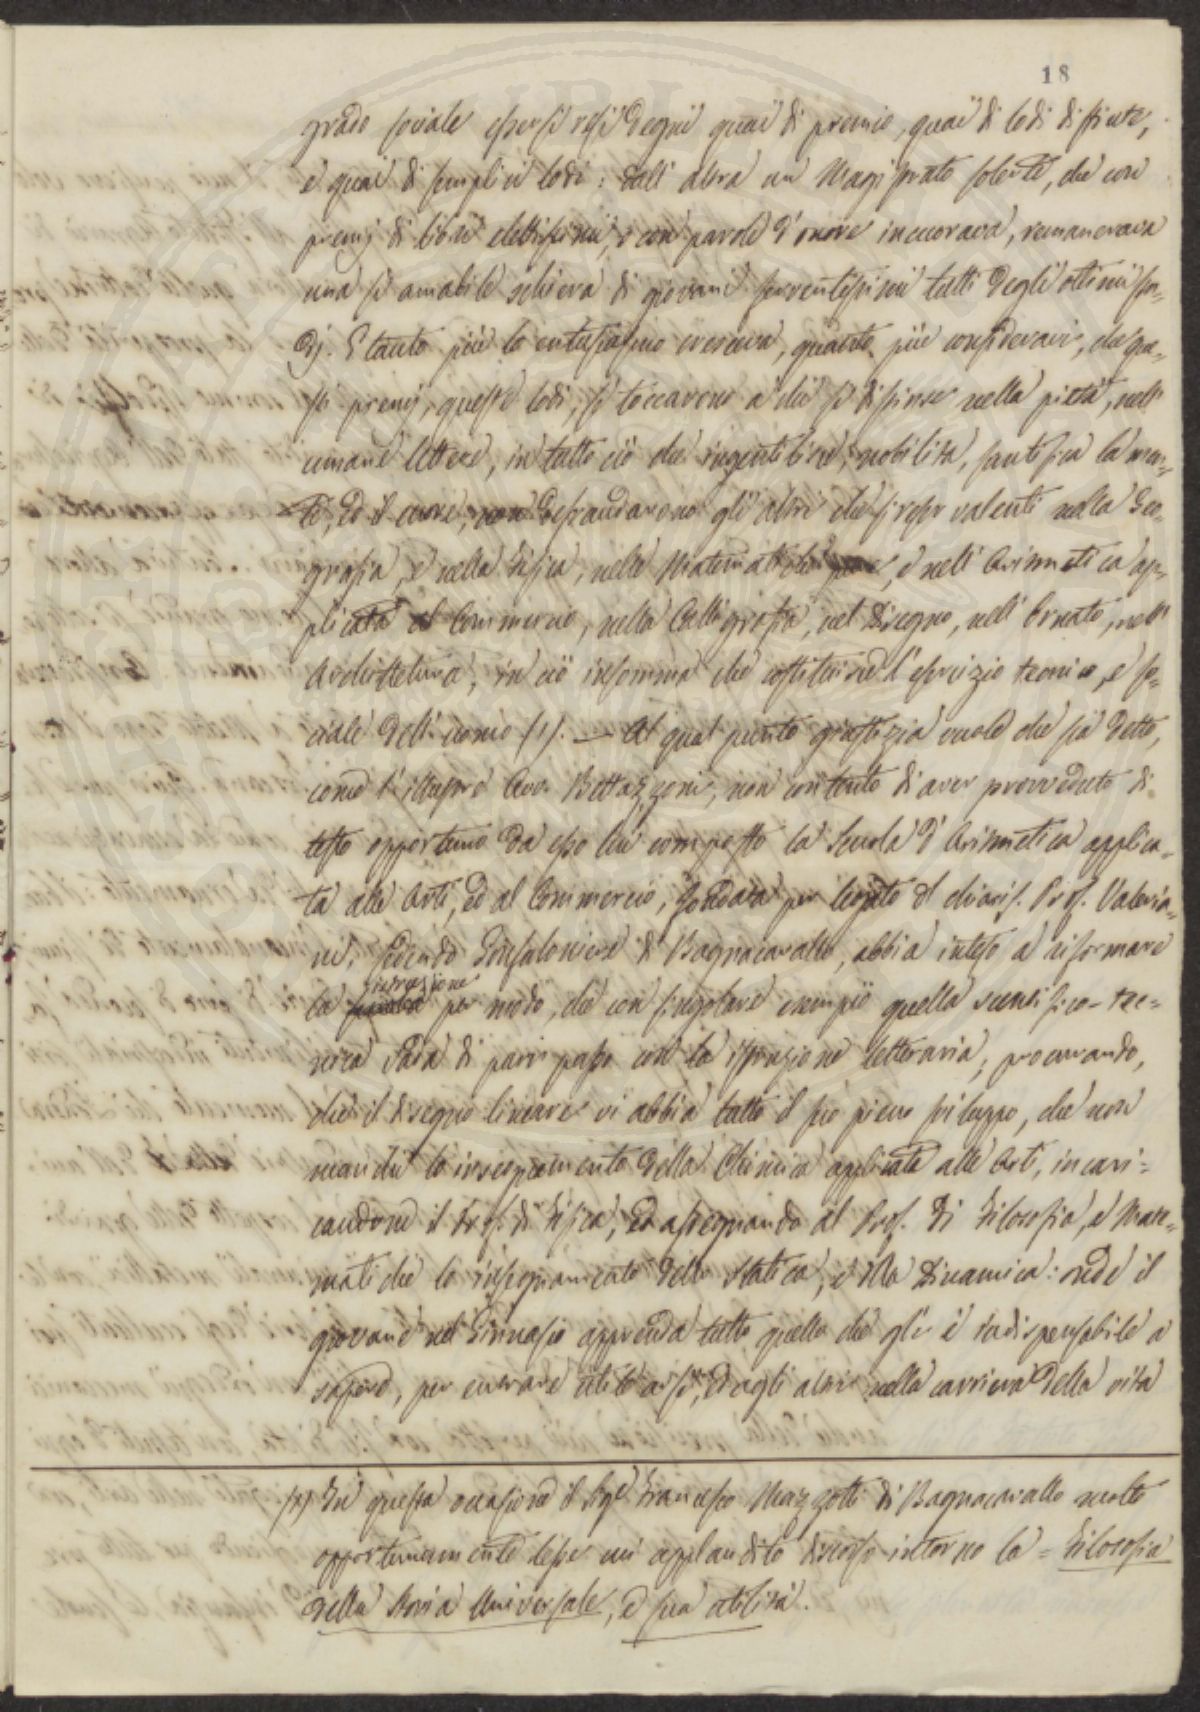 18
grado sociale essersi resi degni quai di premio, quai di lodi distinte,
e quai di semplici lodi: dall' altra un Magistrato solerte, che con
premj di libri elettissimi, e con parole d'onore incuorava, rimunerava
una sì amabile schiera di giovani ferventissimi tutti degli ottimi stu-
dj. E tanto più lo entusiasmo cresceva, quanto più consideravi, che que-
sti premj, queste lodi, se toccarono a chi si distinse nella pietà, nell'
umane lettere, in tutto ciò che ingentilisce, nobilita, santifica la men-
te, ed il cuore, non defraudarono gli altri che si resero valenti nella Geo-
grafia, e nella Fisica, nelle Matematiche, e nell' Arimmetica ap-
plicata al Commercio, nella Calligrafia, nel Disegno, nell' Ornato, nell'
Architettura, in ciò insomma che costituisce l'esercizio tecnico, e so-
ciale dell' uomo (1). — Al qual punto giustizia vuole che sia detto,
come l'illustre Avv. Bettazzoni, non contento di aver provveduto di
testo opportuno da esso lui composto la Scuola d'Arimmetica applica-
ta alle Arti, ed al Commercio, fondata per legato del chiariss. Prof. Valeria-
ni, sedendo Gonfaloniere di Bagnacavallo, abbia inteso a riformare
la istruzione per modo, che con singolare esempio quella scientifico-tec-
nica vada di pari passo con la istruzione letteraria, procurando,
che il disegno lineare vi abbia tutto il suo pieno sviluppo, che non
manchi lo insegnamento della Chimica applicata alle Arti, incari-
candone il Prof. di Fisica, ed assegnando al Prof. di Filosofia, e Mate-
matiche lo insegnamento della Statica, e della Dinamica: onde il
giovane nel Ginnasio apprenda tutto quello che gli è indispensabile a
sapere, per entrare utile a sè, ed agli altri nella carriera della vita
(1) In questa occasione il Sig.e Francesco Mazzotti di Bagnacavallo molto
opportunamente lesse un applaudito discorso intorno la = Filosofia
della Storia Universale, e sua utilità.